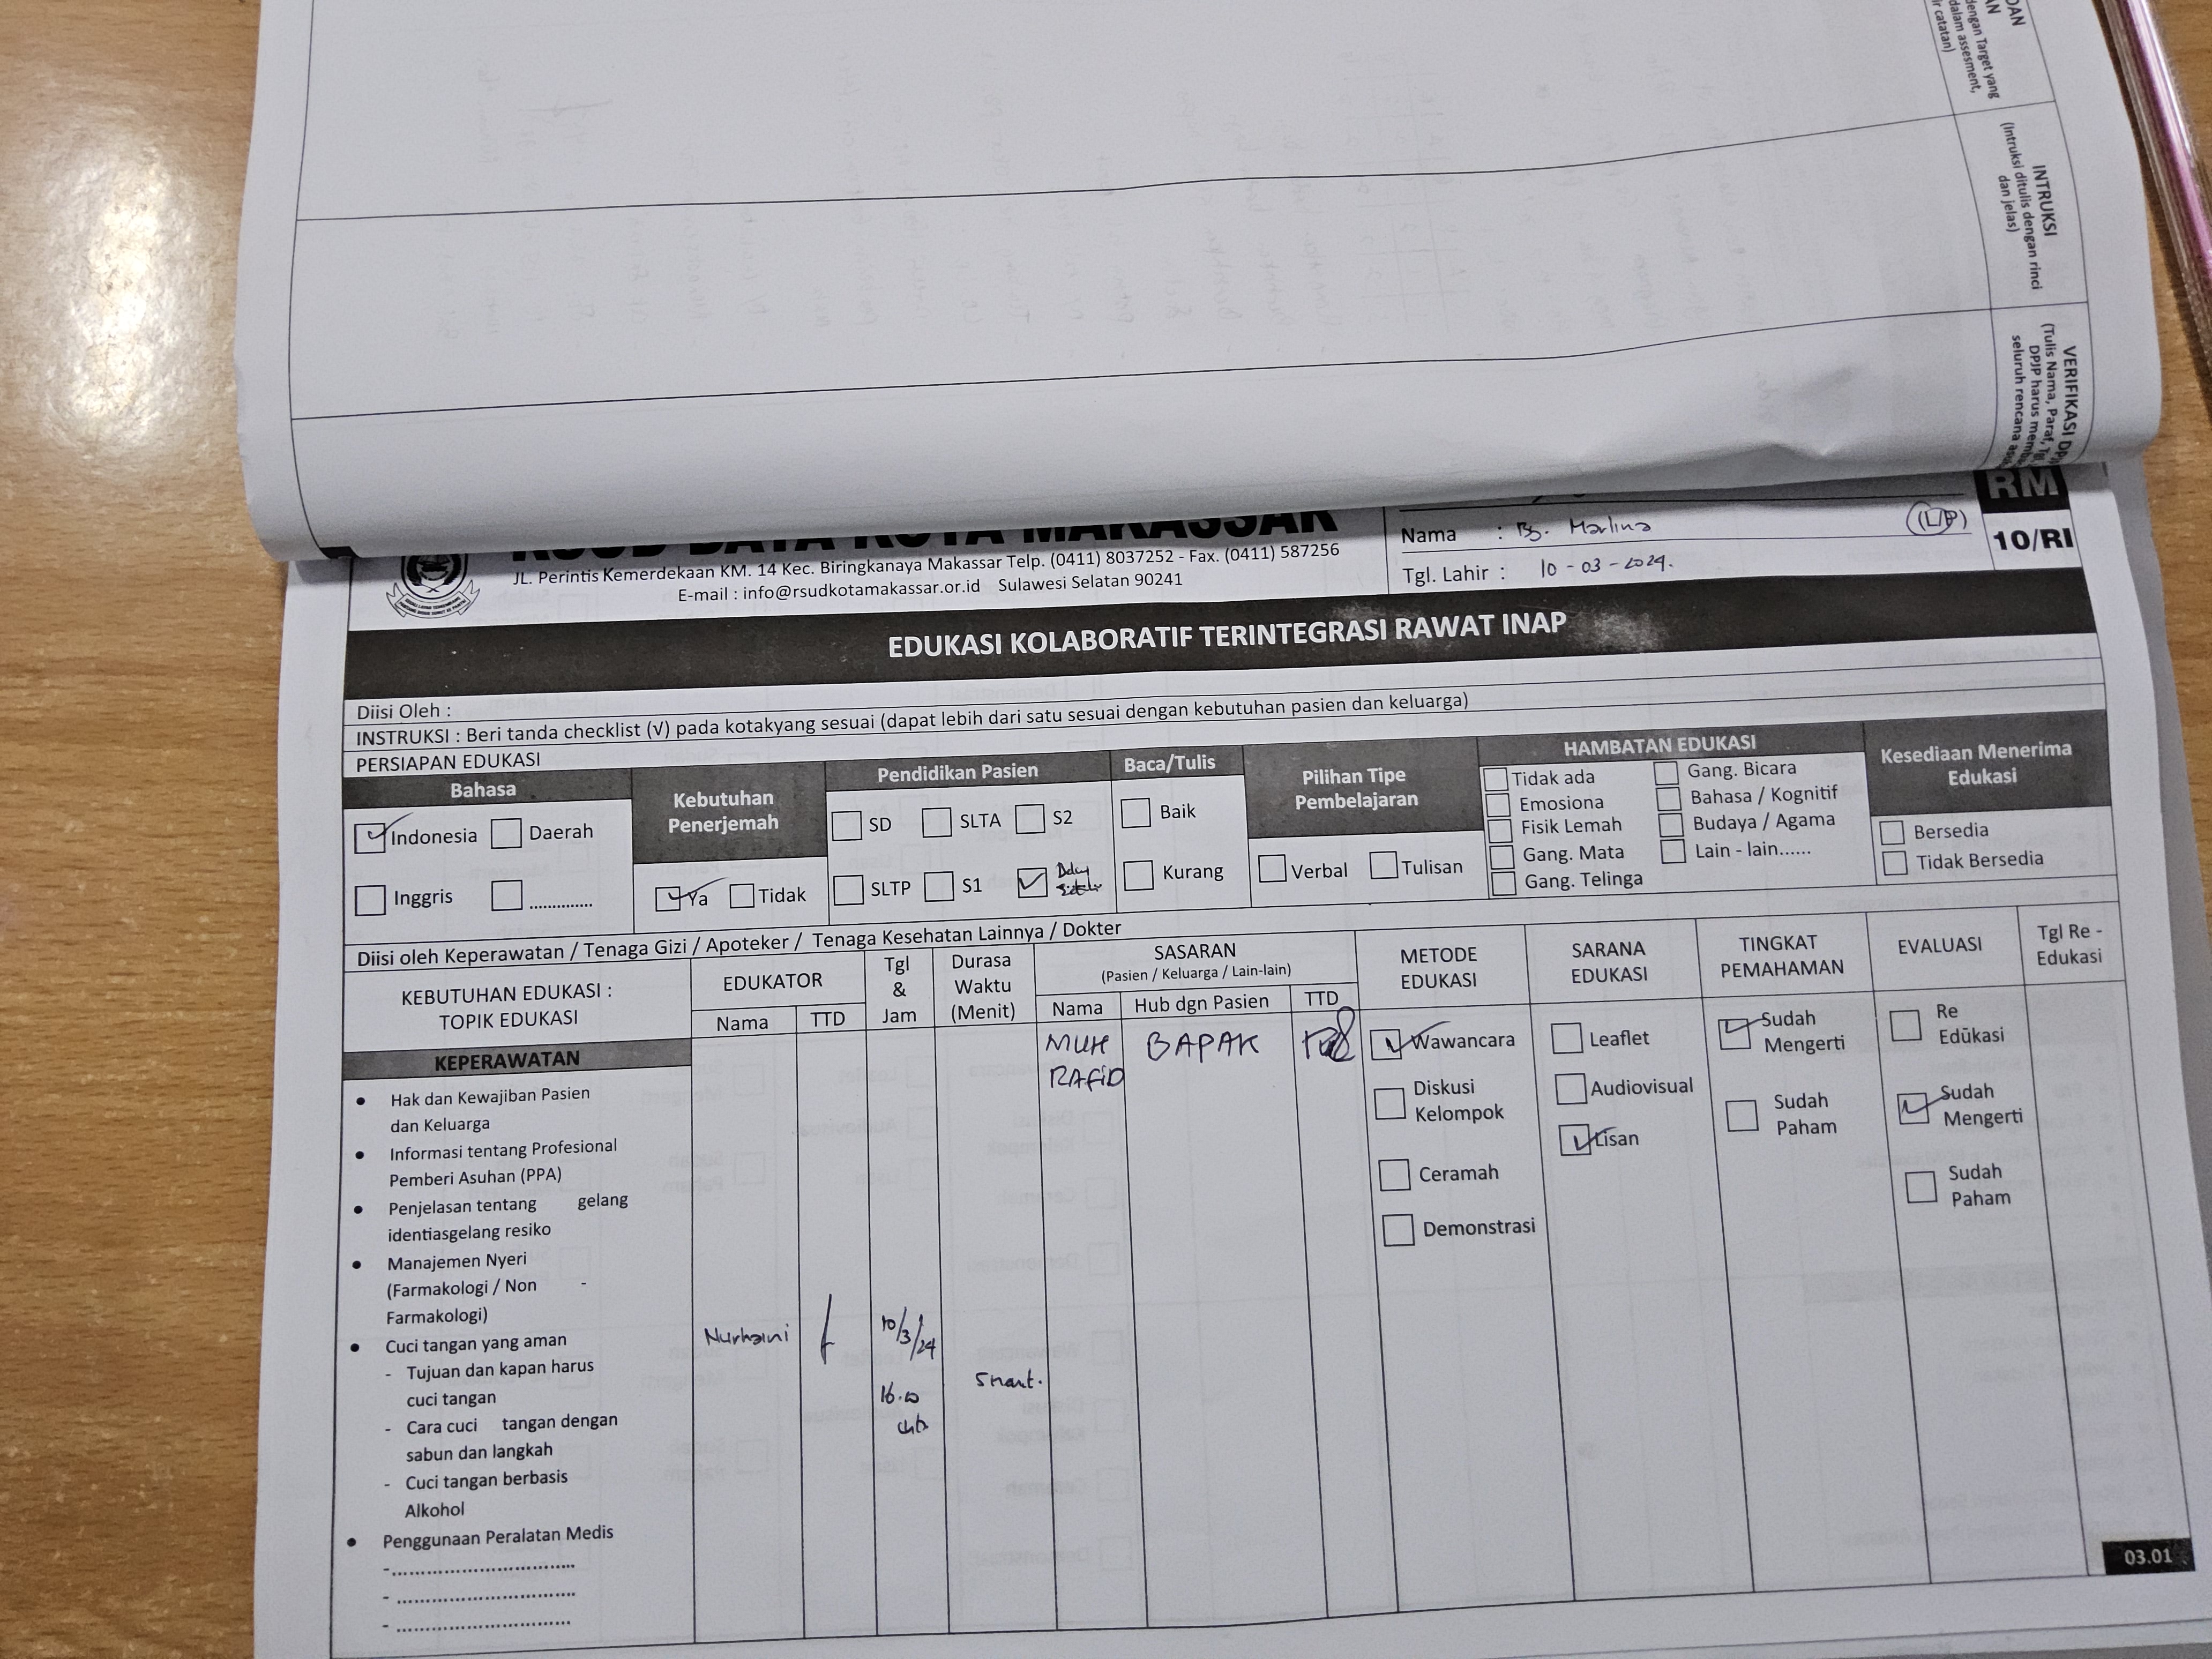 DAN
AN
dengan Target yang
dalam assesment,
ir catatan)
INTRUKSI
(Intruksi ditulis dengan rinci
dan jelas)
VERIFIKASI DPJP
(Tulis Nama, Paraf, Tgl
DPJP harus memba
seluruh rencana asu
RSUD DAYA KOTA MAKASSAR
JL. Perintis Kemerdekaan KM. 14 Kec. Biringkanaya Makassar Telp. (0411) 8037252 - Fax. (0411) 587256
E-mail : info@rsudkotamakassar.or.id Sulawesi Selatan 90241
Nama : By. Marlina (L/P)
Tgl. Lahir : 10 - 03 - 2024.
RM
10/RI
EDUKASI KOLABORATIF TERINTEGRASI RAWAT INAP
Diisi Oleh :
INSTRUKSI : Beri tanda checklist (√) pada kotakyang sesuai (dapat lebih dari satu sesuai dengan kebutuhan pasien dan keluarga)
PERSIAPAN EDUKASI
Bahasa
Indonesia Daerah
Inggris .............
Kebutuhan
Penerjemah
Ya Tidak
Pendidikan Pasien
SD SLTA S2
SLTP S1
Baca/Tulis
Baik
Kurang
Pilihan Tipe
Pembelajaran
Verbal Tulisan
HAMBATAN EDUKASI
Tidak ada Gang. Bicara
Emosiona Bahasa / Kognitif
Fisik Lemah Budaya / Agama
Gang. Mata Lain - lain......
Gang. Telinga
Kesediaan Menerima
Edukasi
Bersedia
Tidak Bersedia
Diisi oleh Keperawatan / Tenaga Gizi / Apoteker / Tenaga Kesehatan Lainnya / Dokter
KEBUTUHAN EDUKASI :
TOPIK EDUKASI
EDUKATOR
Nama TTD
Tgl
&
Jam
Durasa
Waktu
(Menit)
SASARAN
(Pasien / Keluarga / Lain-lain)
Nama Hub dgn Pasien TTD
METODE
EDUKASI
SARANA
EDUKASI
TINGKAT
PEMAHAMAN
EVALUASI
Tgl Re -
Edukasi
KEPERAWATAN
• Hak dan Kewajiban Pasien
dan Keluarga
• Informasi tentang Profesional
Pemberi Asuhan (PPA)
• Penjelasan tentang gelang
identiasgelang resiko
• Manajemen Nyeri
(Farmakologi / Non -
Farmakologi)
• Cuci tangan yang aman
- Tujuan dan kapan harus
cuci tangan
- Cara cuci tangan dengan
sabun dan langkah
- Cuci tangan berbasis
Alkohol
• Penggunaan Peralatan Medis
- ................................
- ................................
- ................................
Nurhaini
10/3/24
16.00
5 menit.
MUH
RAFID
BAPAK
Wawancara
Diskusi
Kelompok
Ceramah
Demonstrasi
Leaflet
Audiovisual
Lisan
Sudah
Mengerti
Sudah
Paham
Re
Edukasi
Sudah
Mengerti
Sudah
Paham
03.01